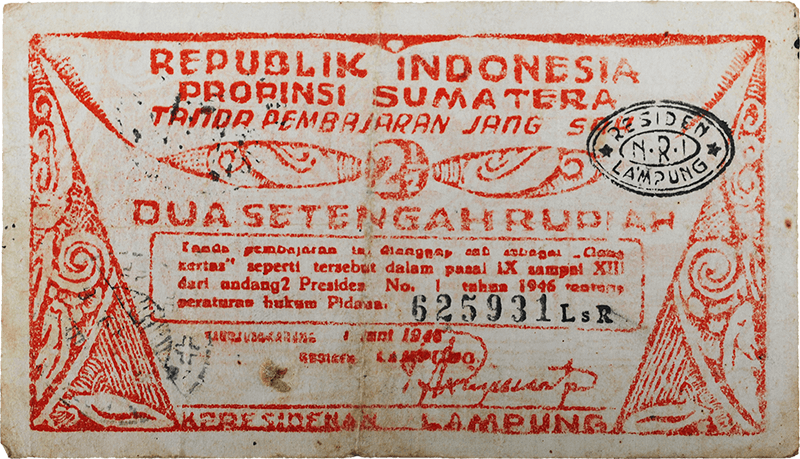 REPUBLIK INDONESIA
PROPINSI SUMATERA
TANDA PEMBAJARAN JANG
RESIDEN
N·R·I
LAMPUNG
2½
DUA SETENGAH RUPIAH
Tanda pembajaran dianggap sebagai „Oeang
kertas” seperti tersebut dalam pasal IX sampai XIII
dari undang2 Presiden No. 1 tahun 1946 tentang
peraturan hukum Pidana.
625931 LsR
Juni 1946
RESIDEN LAMPUNG
KERESIDENAN LAMPUNG